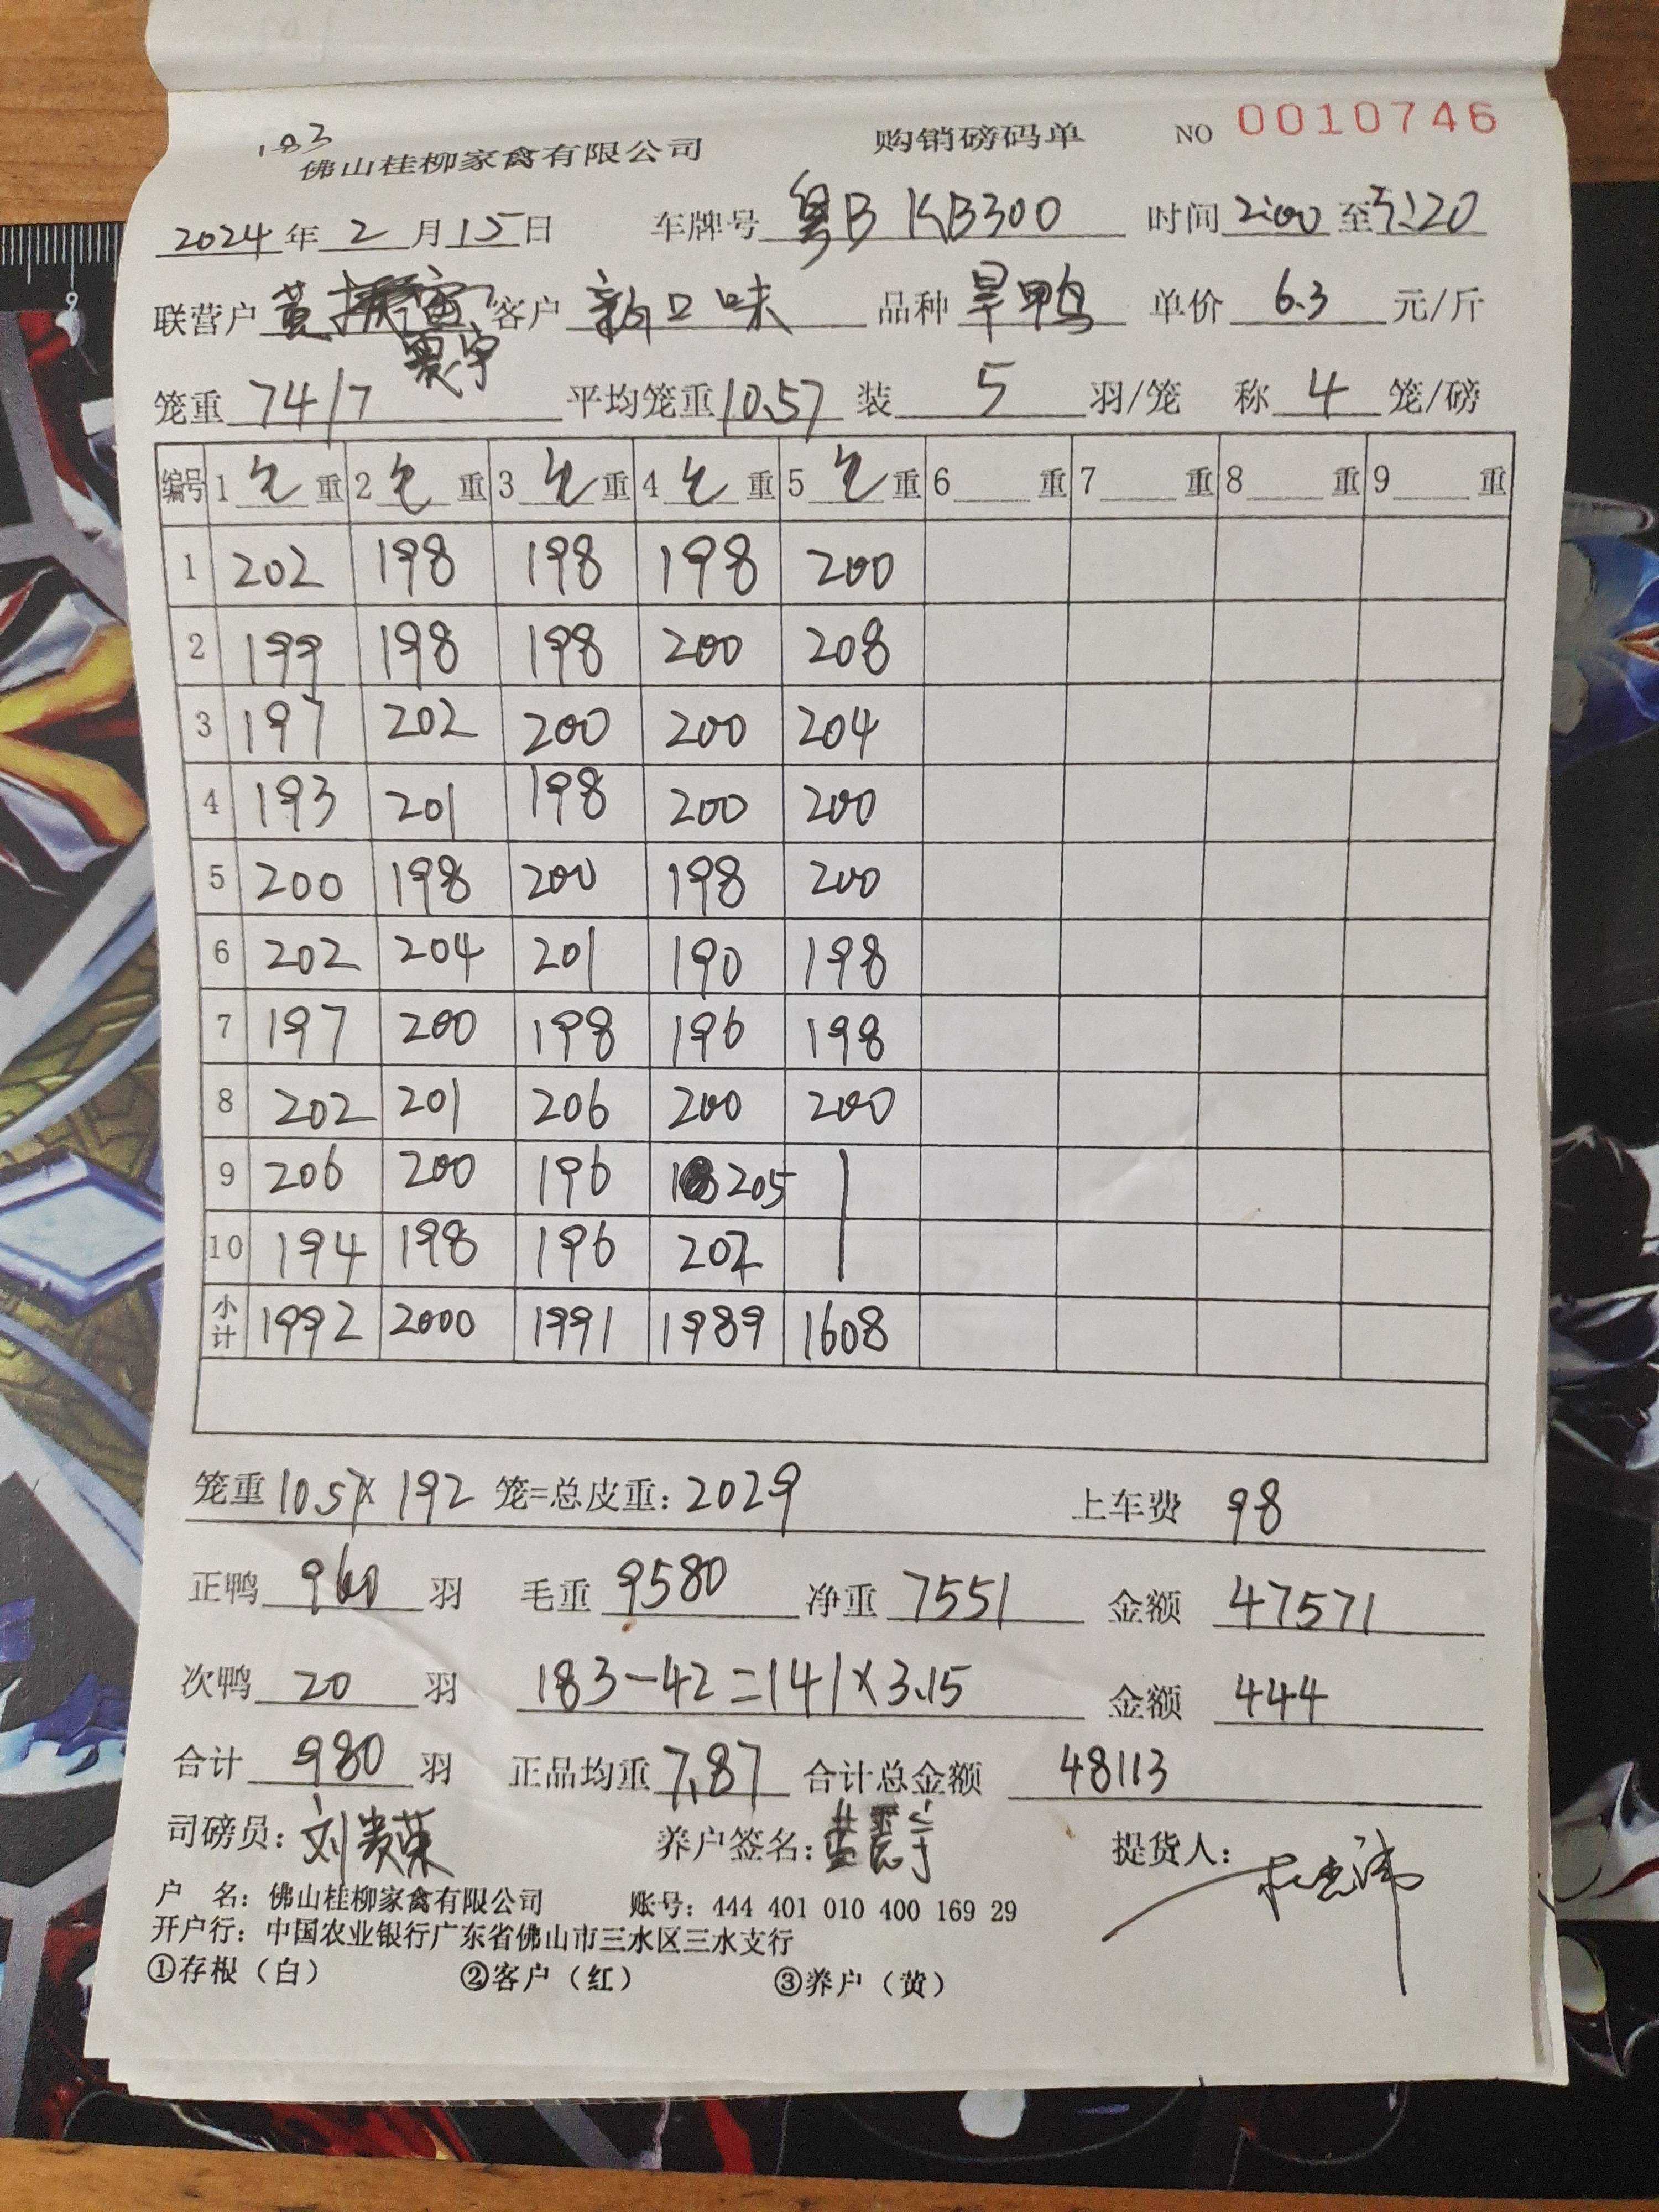 183
佛山桂柳家禽有限公司 购销磅码单 NO 0010746
2024年2月15日 车牌号 粤B KB300 时间 2:00 至 5:20
联营户 黄 震宇 客户 新口味 品种 旱鸭 单价 6.3 元/斤
笼重 74/7 平均笼重 10.57 装 5 羽/笼 称 4 笼/磅
编号 1 毛 重 2 毛 重 3 毛 重 4 毛 重 5 毛 重 6 重 7 重 8 重 9 重
1 202 198 198 198 200
2 199 198 198 200 208
3 197 202 200 200 204
4 193 201 198 200 200
5 200 198 200 198 200
6 202 204 201 190 198
7 197 200 198 196 198
8 202 201 206 200 200
9 206 200 196 205
10 194 198 196 202
小计 1992 2000 1991 1989 1608
笼重 10.57 × 192 笼=总皮重: 2029 上车费 98
正鸭 960 羽 毛重 9580 净重 7551 金额 47571
次鸭 20 羽 183-42=141×3.15 金额 444
合计 980 羽 正品均重 7.87 合计总金额 48113
司磅员: 刘贵荣 养户签名: 提货人:
户 名: 佛山桂柳家禽有限公司 账号: 444 401 010 400 169 29
开户行: 中国农业银行广东省佛山市三水区三水支行
①存根（白） ②客户（红） ③养户（黄）